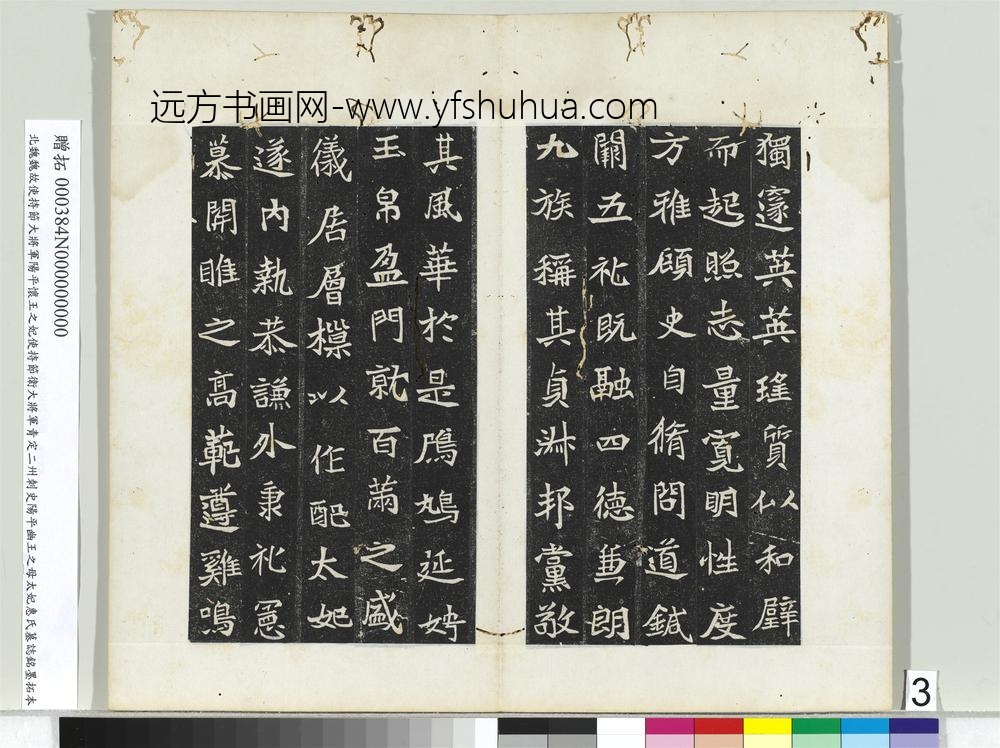 远方书画网-www.yfshuhua.com
獨邃英英瑾質似和璧
而起照志量寬明性度
方雅頋史自脩問道鍼
闈五礼既融四德兼朗
九族稱其貞淋邦黨敬
其風華於是鳲鳩延娉
玉帛盈門就百兩之盛
儀居層櫟以作配太妃
遂内執恭謙外秉礼憲
慕開睢之高範遵雞鳴
贈拓 000384N000000000
北魏魏故使持節大將軍陽平懷王之妃使持節衛大將軍青定二州刺史陽平幽王之母太妃惠氏墓誌銘墨拓本
3